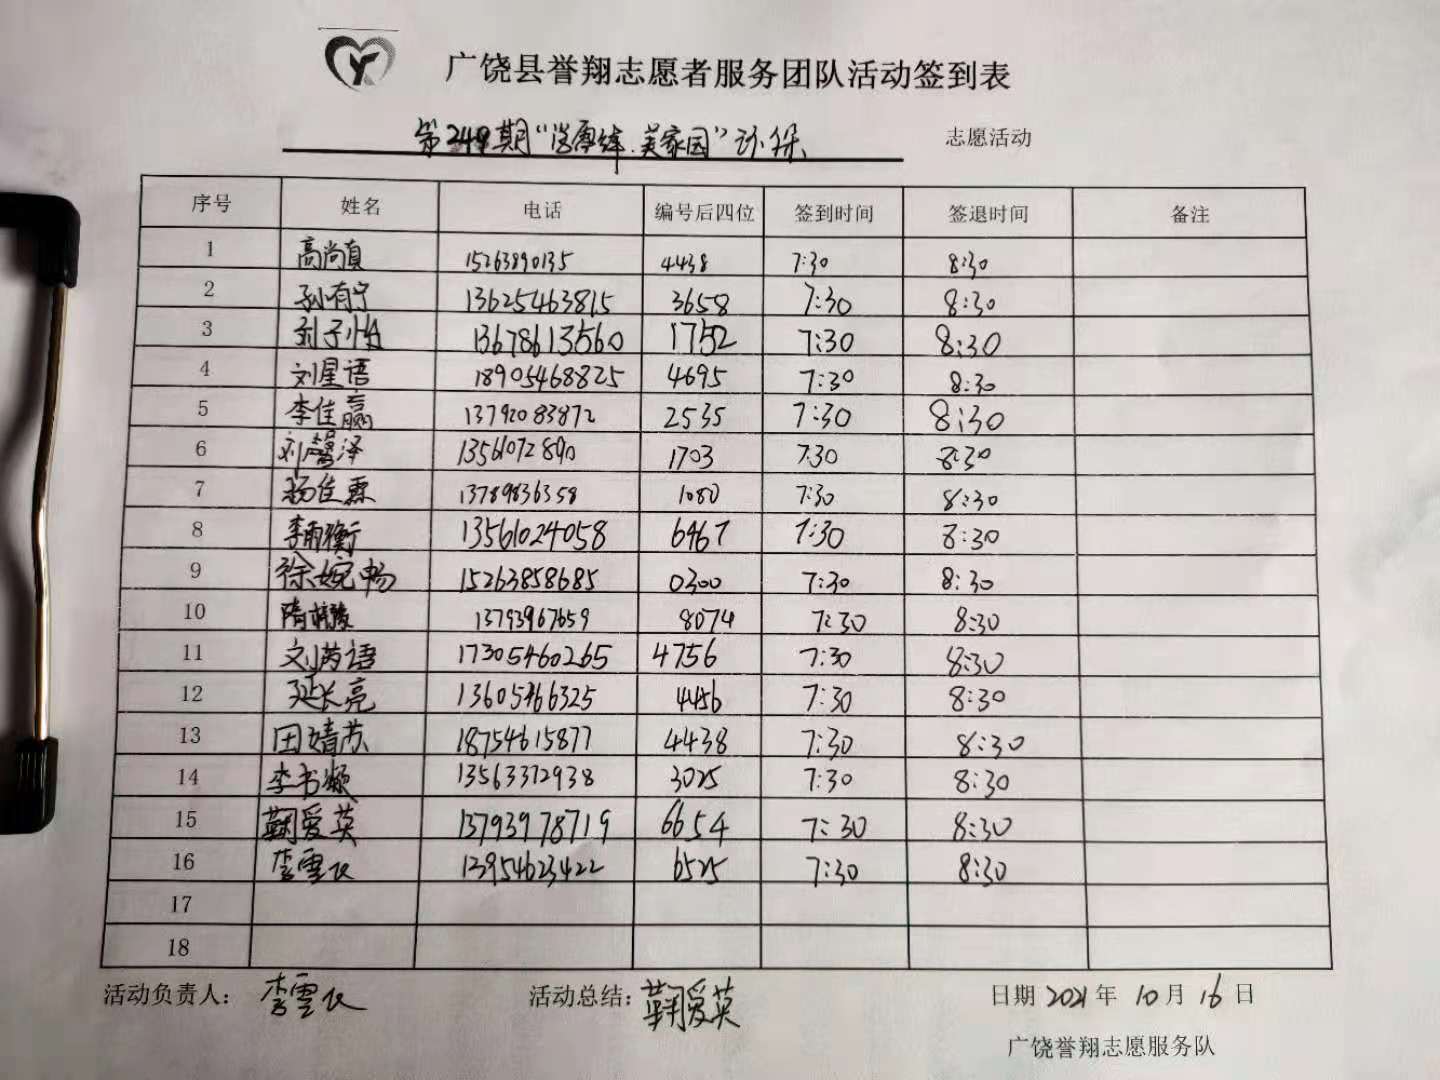 广饶县誉翔志愿者服务团队活动签到表
第249期“ 美家园”环保 志愿活动
序号 姓名 电话 编号后四位 签到时间 签退时间 备注
1 高尚真 15263890135 4438 7:30 8:30
2 孙有宁 13625463815 3658 7:30 8:30
3 子怡 13678613560 1752 7:30 8:30
4 刘星语 18905468825 4695 7:30 8:30
5 李佳赢 13792083872 2535 7:30 8:30
6 刘馨泽 13561072890 1703 7:30 8:30
7 杨佳霖 13789836358 1080 7:30 8:30
8 李雨衡 13561024058 6467 7:30 8:30
9 徐婉畅 15263858685 0300 7:30 8:30
10 隋 13793967659 8074 7:30 8:30
11 刘芮语 17305460265 4756 7:30 8:30
12 延长亮 13605466325 4456 7:30 8:30
13 田婧苏 18754615877 4438 7:30 8:30
14 李书颍 13563372938 3025 7:30 8:30
15 鞠爱英 13793978719 6654 7:30 8:30
16 李雪 13954623422 6525 7:30 8:30
17
18
活动负责人： 李雪 活动总结： 鞠爱英 日期 2021 年 10 月 16 日
广饶誉翔志愿服务队